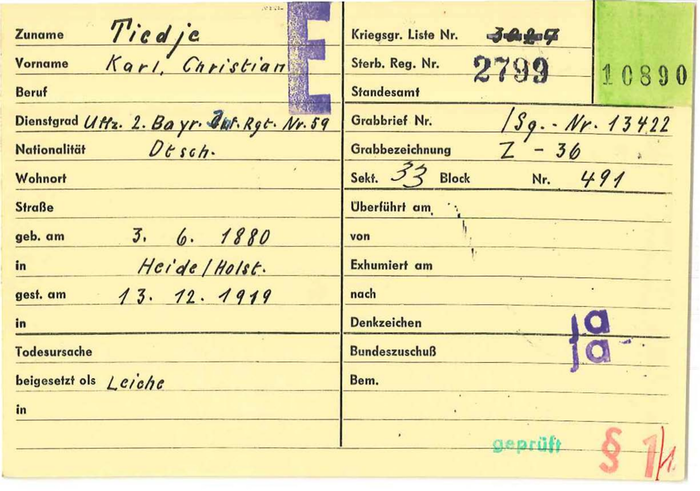 E
Zuname Tiedje
Vorname Karl, Christian
Beruf
Dienstgrad Uffz. 2. Bayr. Inf. Rgt. Nr. 59
Nationalität Dtsch.
Wohnort
Straße
geb. am 3. 6. 1880
in Heide/Holst.
gest. am 13. 12. 1919
in
Todesursache
beigesetzt als Leiche
in
Kriegsgr. Liste Nr.
Sterb. Reg. Nr. 2799
10890
Standesamt
Grabbrief Nr. /Sg.-Nr. 13422
Grabbezeichnung Z - 36
Sekt. 33 Block Nr. 491
Überführt am
von
Exhumiert am
nach
Denkzeichen ja
Bundeszuschuß ja
Bem.
geprüft § 1/1